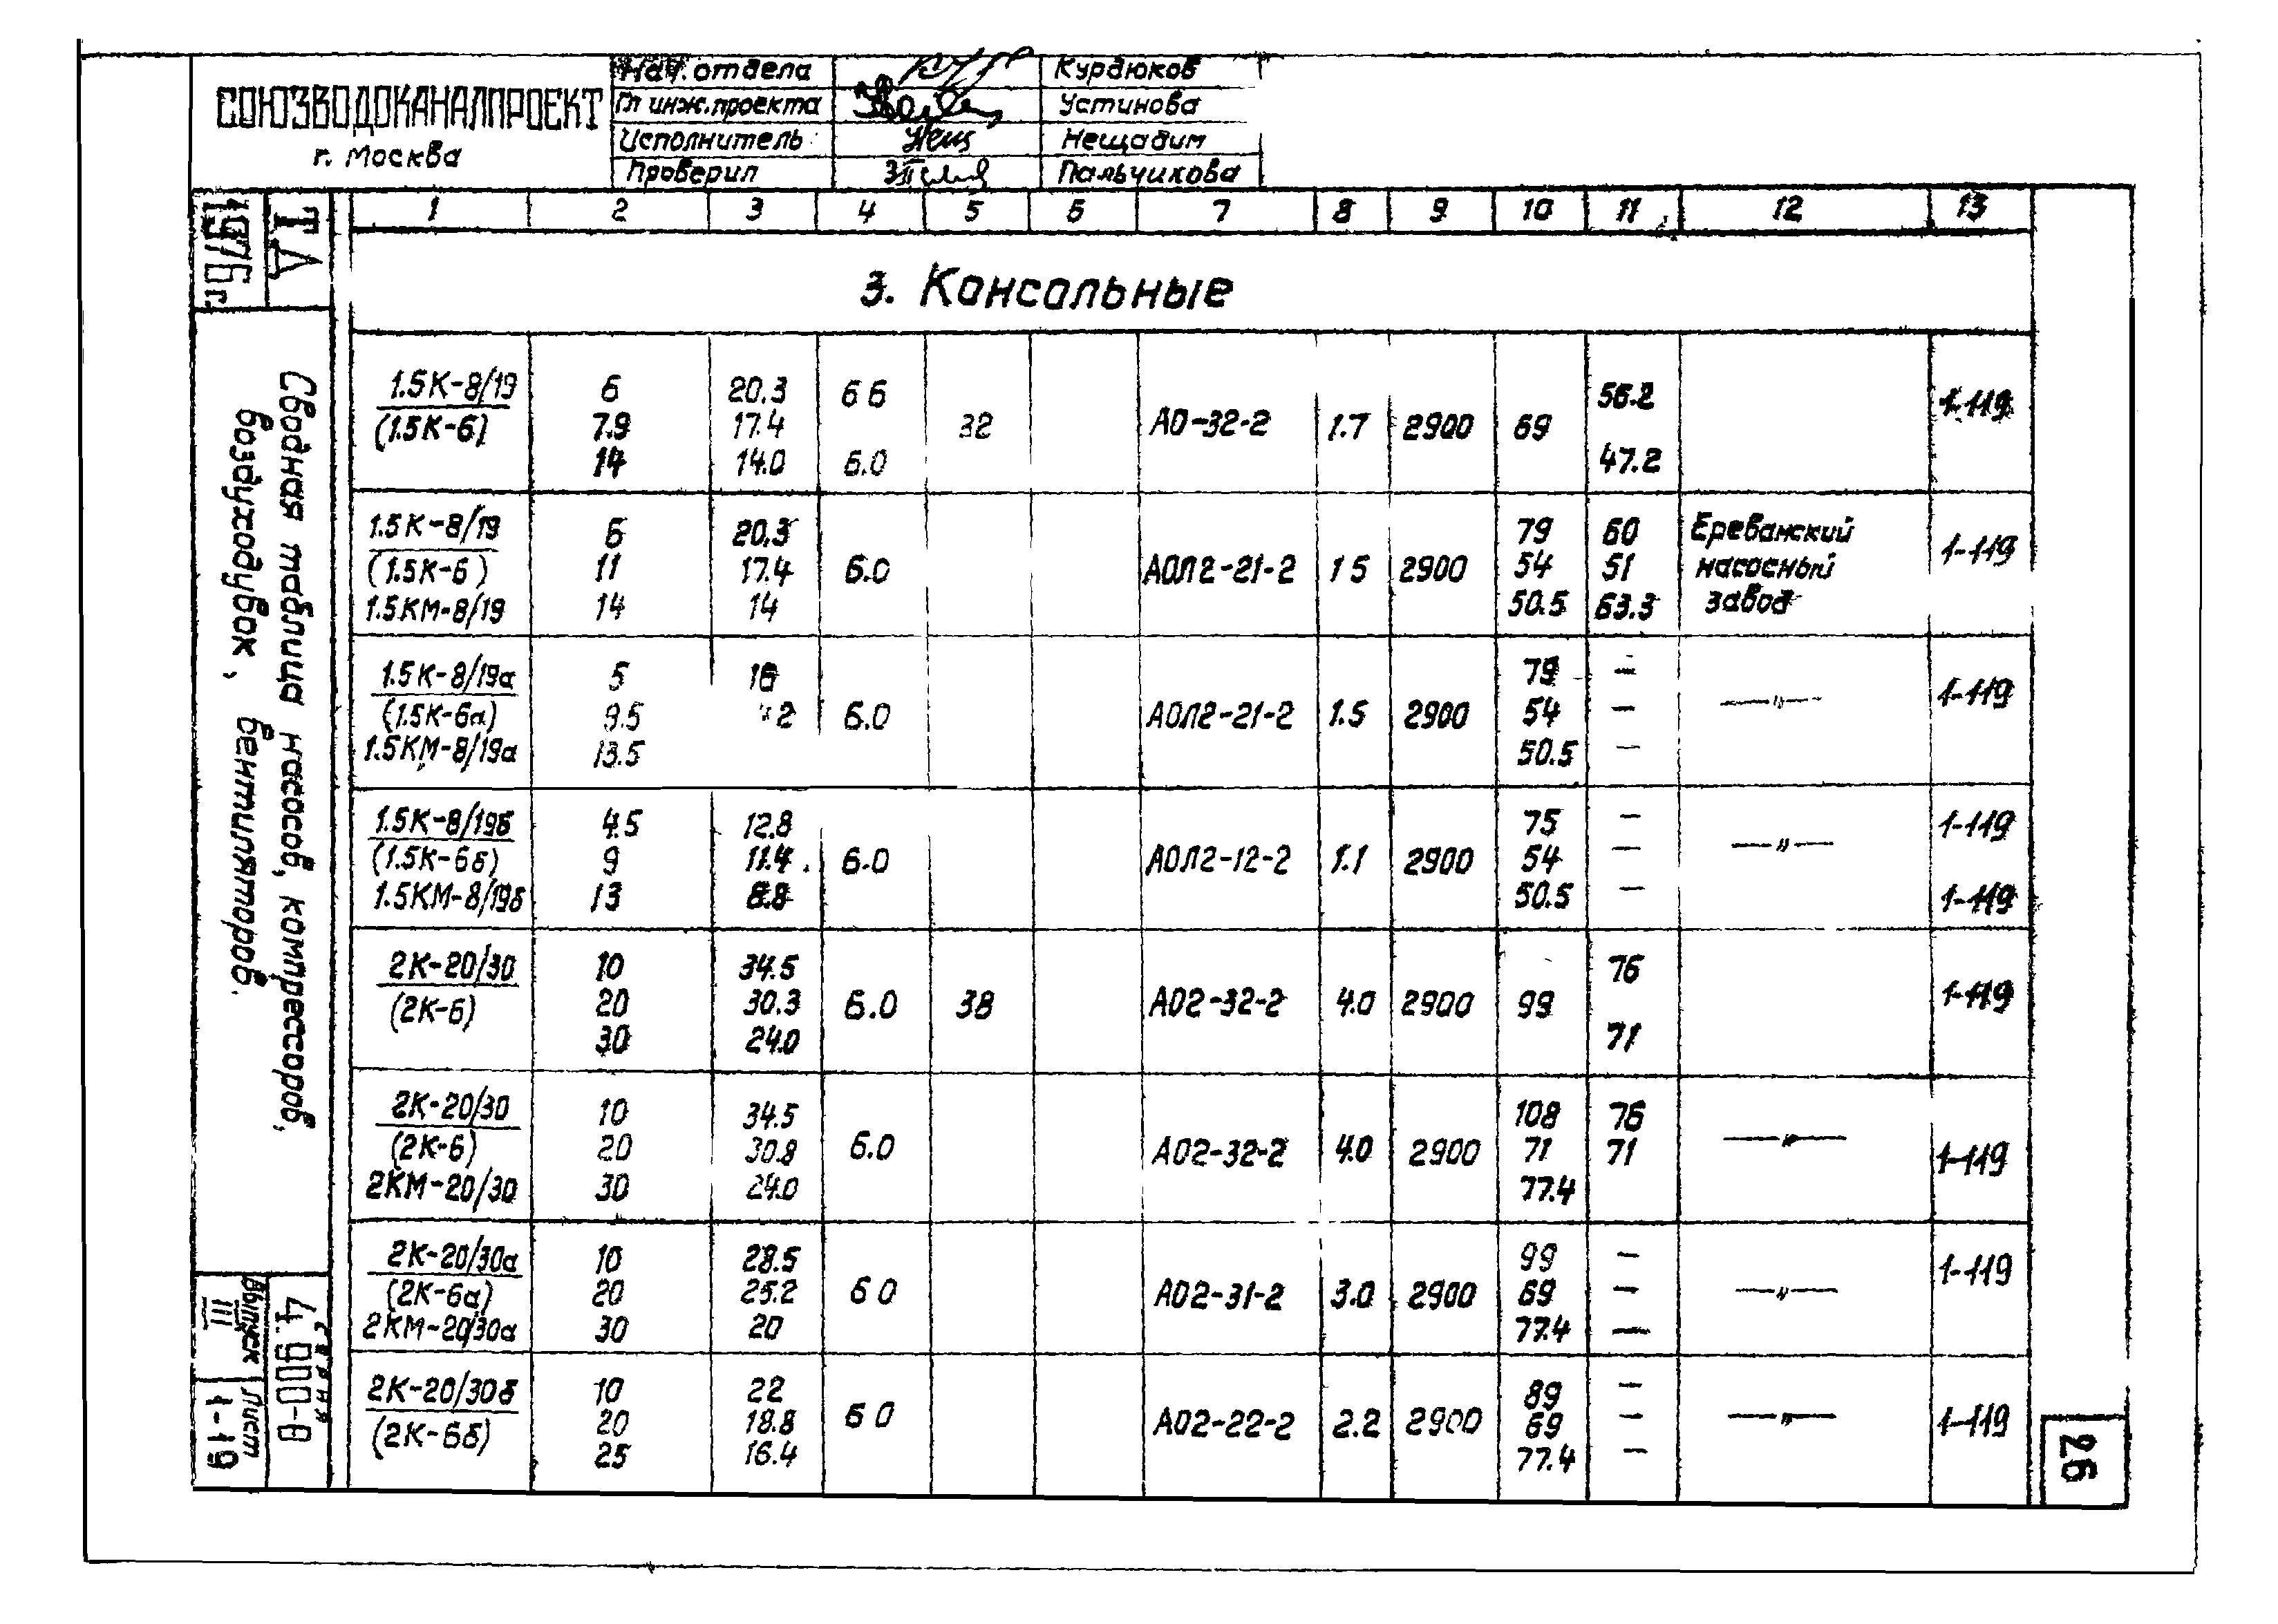 СОЮЗВОДОКАНАЛПРОЕКТ
г. Москва
Нач. отдела Курдюков
Гл инж. проекта Устинова
Исполнитель Нещ Нещадим
Проверил Пальчикова
ТД
1976 г.
Сводная таблица насосов, компрессоров,
воздуходувок, вентиляторов.
Серия
4.900-8
Выпуск III
Лист 1-19
1 2 3 4 5 6 7 8 9 10 11 12 13
3. Консольные
1.5К-8/19 6 20.3 6 6 56.2
(1.5К-6) 7.9 17.4 32 АО-32-2 1.7 2900 69 1-119
14 14.0 6.0 47.2
1.5К-8/19 6 20.3 79 60 Ереванский
(1.5К-6) 11 17.4 6.0 АОЛ2-21-2 1 5 2900 54 51 насосный 1-119
1.5КМ-8/19 14 14 50.5 63.3 завод
1.5К-8/19а 5 16 79 —
(1.5К-6а) 9.5 6.0 АОЛ2-21-2 1.5 2900 54 — —"— 1-119
1.5КМ-8/19а 13.5 50.5 —
1.5К-8/19б 4.5 12.8 75 — 1-119
(1.5К-6б) 9 11.4 6.0 АОЛ2-12-2 1.1 2900 54 — —"—
1.5КМ-8/19б 13 8.8 50.5 — 1-119
2К-20/30 10 34.5 76
(2К-6) 20 30.3 6.0 38 АО2-32-2 4.0 2900 99 1-119
30 24.0 71
2К-20/30 10 34.5 108 76
(2К-6) 20 30.8 6.0 АО2-32-2 4.0 2900 71 71 —"— 1-119
2КМ-20/30 30 24.0 77.4
2К-20/30а 10 28.5 99 —
(2К-6а) 20 25.2 6 0 АО2-31-2 3.0 2900 69 — —"— 1-119
2КМ-20/30а 30 20 77.4 —
2К-20/30б 10 22 89 —
(2К-6б) 20 18.8 6 0 АО2-22-2 2.2 2900 69 — —"— 1-119
25 16.4 77.4 —
26